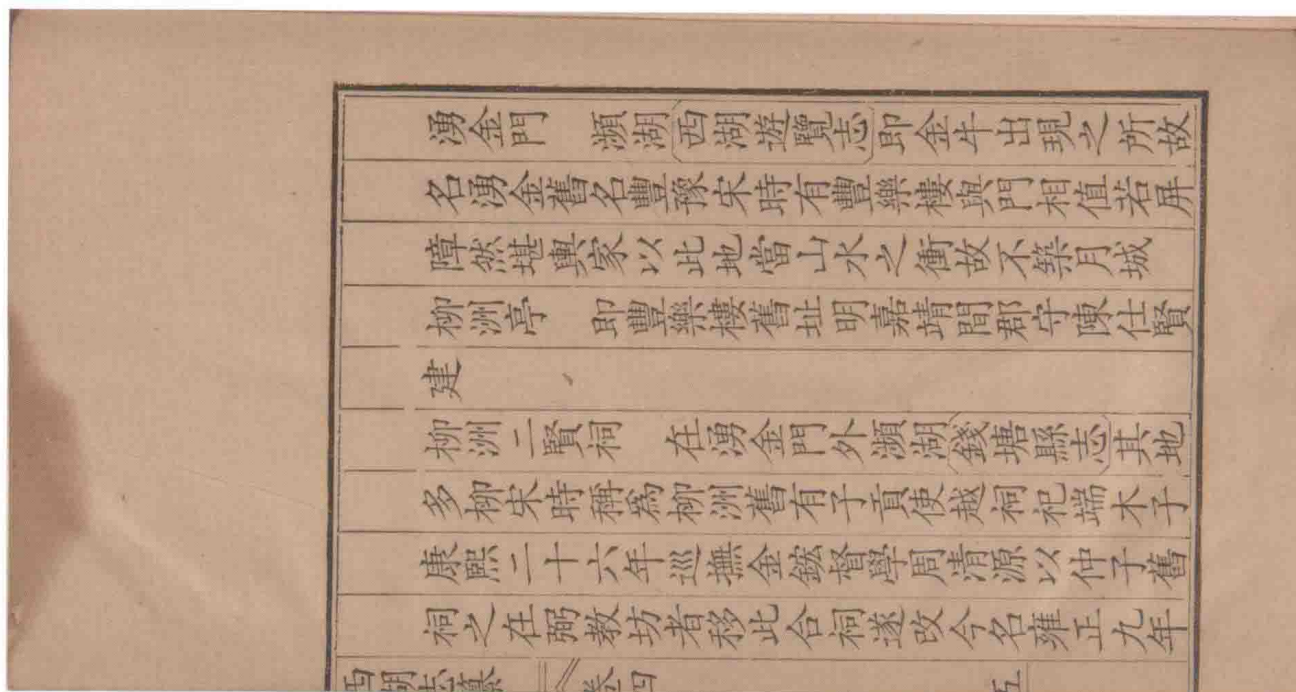 湧金門　瀕湖西湖遊覽志即金牛出現之所故
名湧金舊名豐豫宋時有豐樂樓與門相值若屏
障然堪輿家以此地當山水之衝故不築月城
柳洲亭　即豐樂樓舊址明嘉靖間郡守陳仕賢
建
柳洲二賢祠　在湧金門外瀕湖錢塘縣志其地
多柳宋時稱爲柳洲舊有子貢使越祠祀端木子
康熙二十六年巡撫金鋐督學周清源以仲子舊
祠之在弼教坊者移此合祠遂改今名雍正九年
西湖志纂　卷四　五